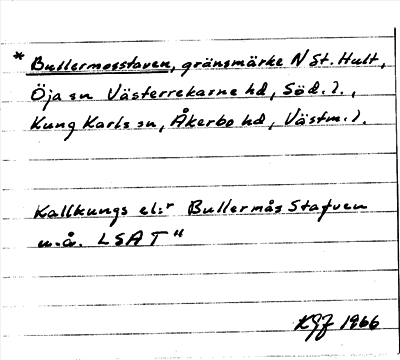 * Bullermosstaven, gränsmärke N St. Hult,
Öja sn Västerrekarne hd, Söd. l.,
Kung Karls sn, Åkerbo hd, Västm. l.
Kallkungs el:r Bullermås Stafven
u.å. LSA T"
KGF 1966